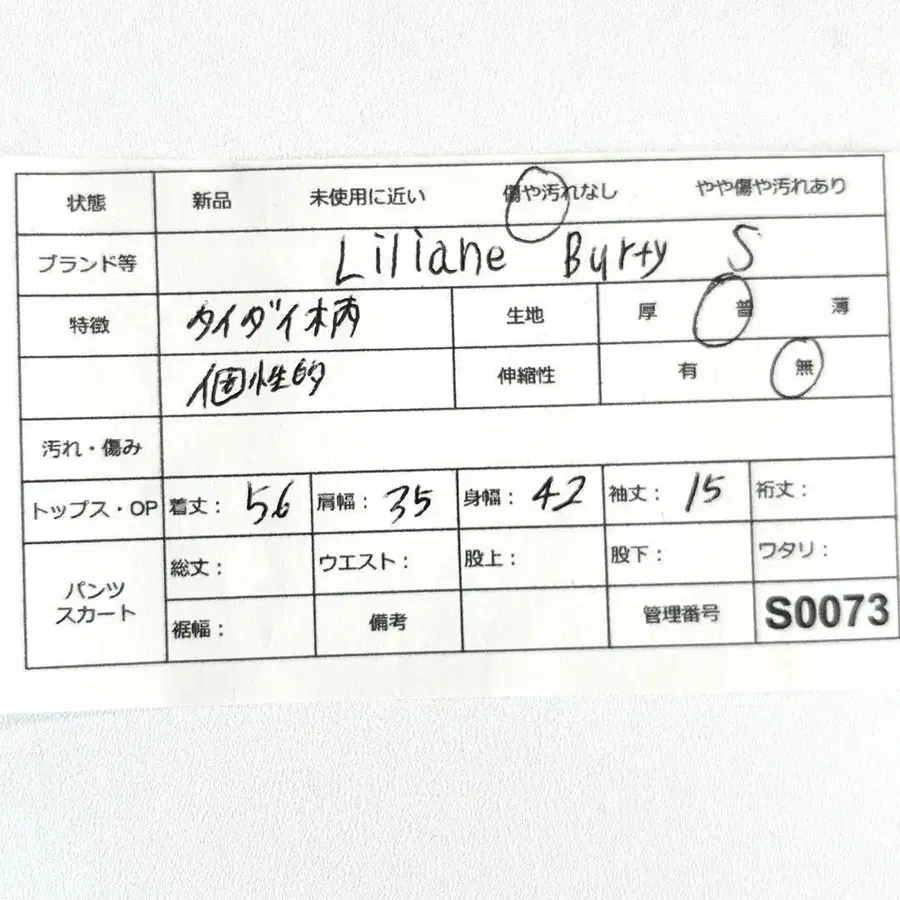 状態 新品 未使用に近い 傷や汚れなし やや傷や汚れあり
ブランド等 Liliane Burty S
特徴 タイダイ柄 生地 厚 普 薄
個性的 伸縮性 有 無
汚れ・傷み
トップス・OP 着丈: 56 肩幅: 35 身幅: 42 袖丈: 15 裄丈:
パンツ スカート 総丈: ウエスト: 股上: 股下: ワタリ:
裾幅: 備考 管理番号 S0073